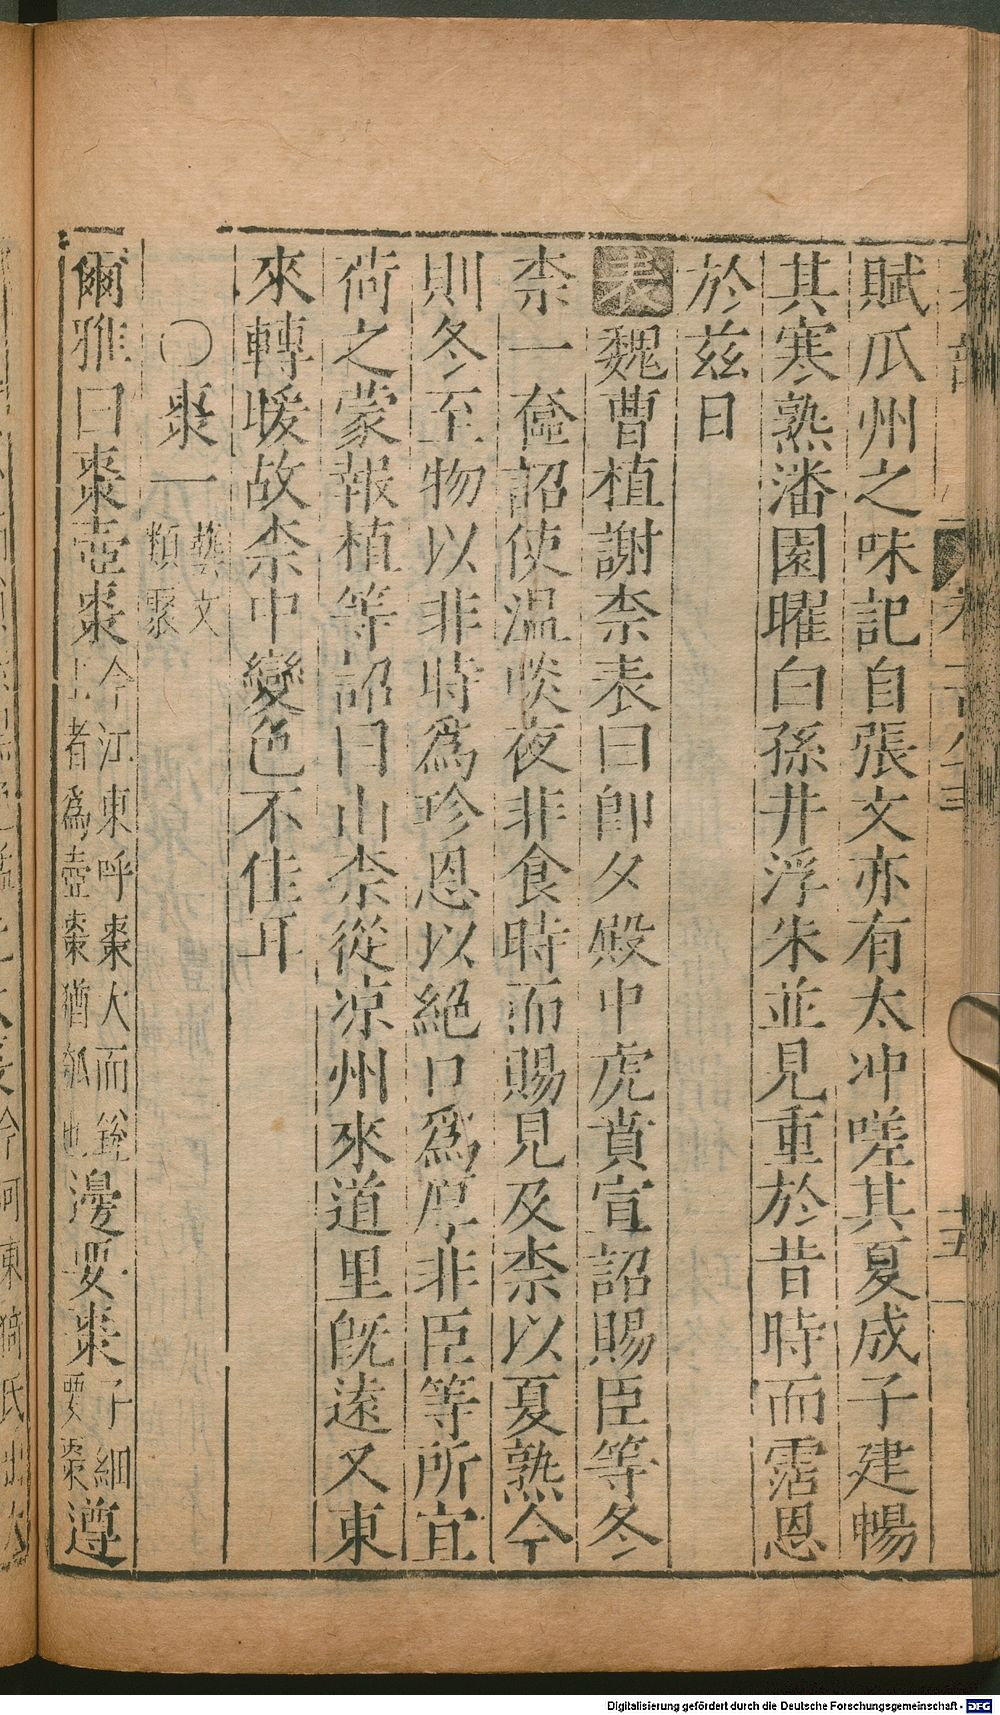 賦瓜州之味記自張文亦有太冲嗟其夏成子建暢
其寒熟潘園曜白孫井浮朱並見重於昔時而霑恩
於茲日
表魏曹植謝柰表曰卽夕殿中虎賁宣詔賜臣等冬
柰一奩詔使溫啖夜非食時而賜見及柰以夏熟今
則冬至物以非時爲珍恩以絕口爲厚非臣等所宜
荷之蒙報植等詔曰山柰從凉州來道里旣遠又東
來轉暖故柰中變色不佳耳
○棗一藝文類聚
爾雅曰棗壺棗今江東呼棗大而銳上者爲壺棗猶瓠也邊要棗子細要棗遵
Digitalisierung gefördert durch die Deutsche Forschungsgemeinschaft - DFG